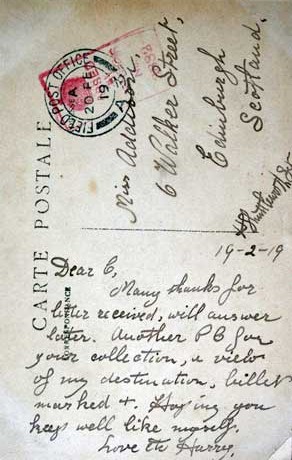 CARTE POSTALE
CORRESPONDANCE
FIELD POST OFFICE
A
20 FE
19
Miss Addison,
6 Walker Street,
Edinburgh
Scotland.
19-2-19
Dear C,
Many thanks for
letter received, will answer
later. Another P C for
your collection, a view
of my destination, billet
marked +. Hoping you
keep well like myself.
Love Harry,